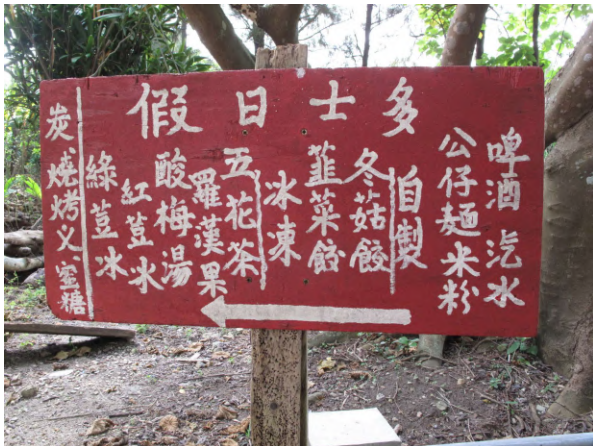 假日士多
啤酒 汽水
公仔麵米粉
自製
冬菇餃
韮菜餃
冰凍
五花茶
羅漢果
酸梅湯
紅荳冰
綠荳冰
炭、燒烤义、蜜糖